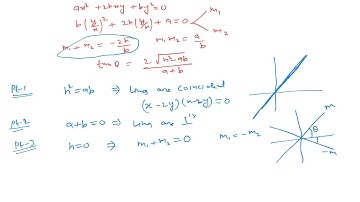 ax² + 2hxy + by² = 0
b(y/x)² + 2h(y/x) + a = 0 m₁ m₂
m₁ + m₂ = -2h/b m₁m₂ = a/b
tanθ = 2√(h²-ab)/(a+b)
Pt-1 h² = ab ⇒ Lines are coincident
(x-2y)(x-2y) = 0
Pt-2 a+b = 0 ⇒ Lines are ⊥ʳ
Pt-3 h = 0 ⇒ m₁ + m₂ = 0 m₁ = -m₂
m
θ
-m